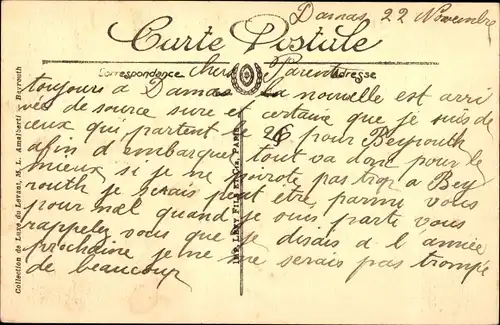 Damas, 22 Novembre
Carte Postale
Correspondance
Adresse
chers Parents
toujours à Damas la nouvelle est arri
vée de source sure et certaine que je suis de
ceux qui partent le 26 pour Beyrouth
afin d'embarquer tout va donc pour le
mieux si je ne pivote pas trop a Bey
routh je serais peut être parmi vous
pour noël quand je suis parti vous
rappelez vous que je disais à l'année
prochaine je ne me serais pas trompé
de beaucoup
Collection de Luxe du Levant, M. L. Amalberti - Beyrouth
IMP. LEVY FILS ET Cie, PARIS